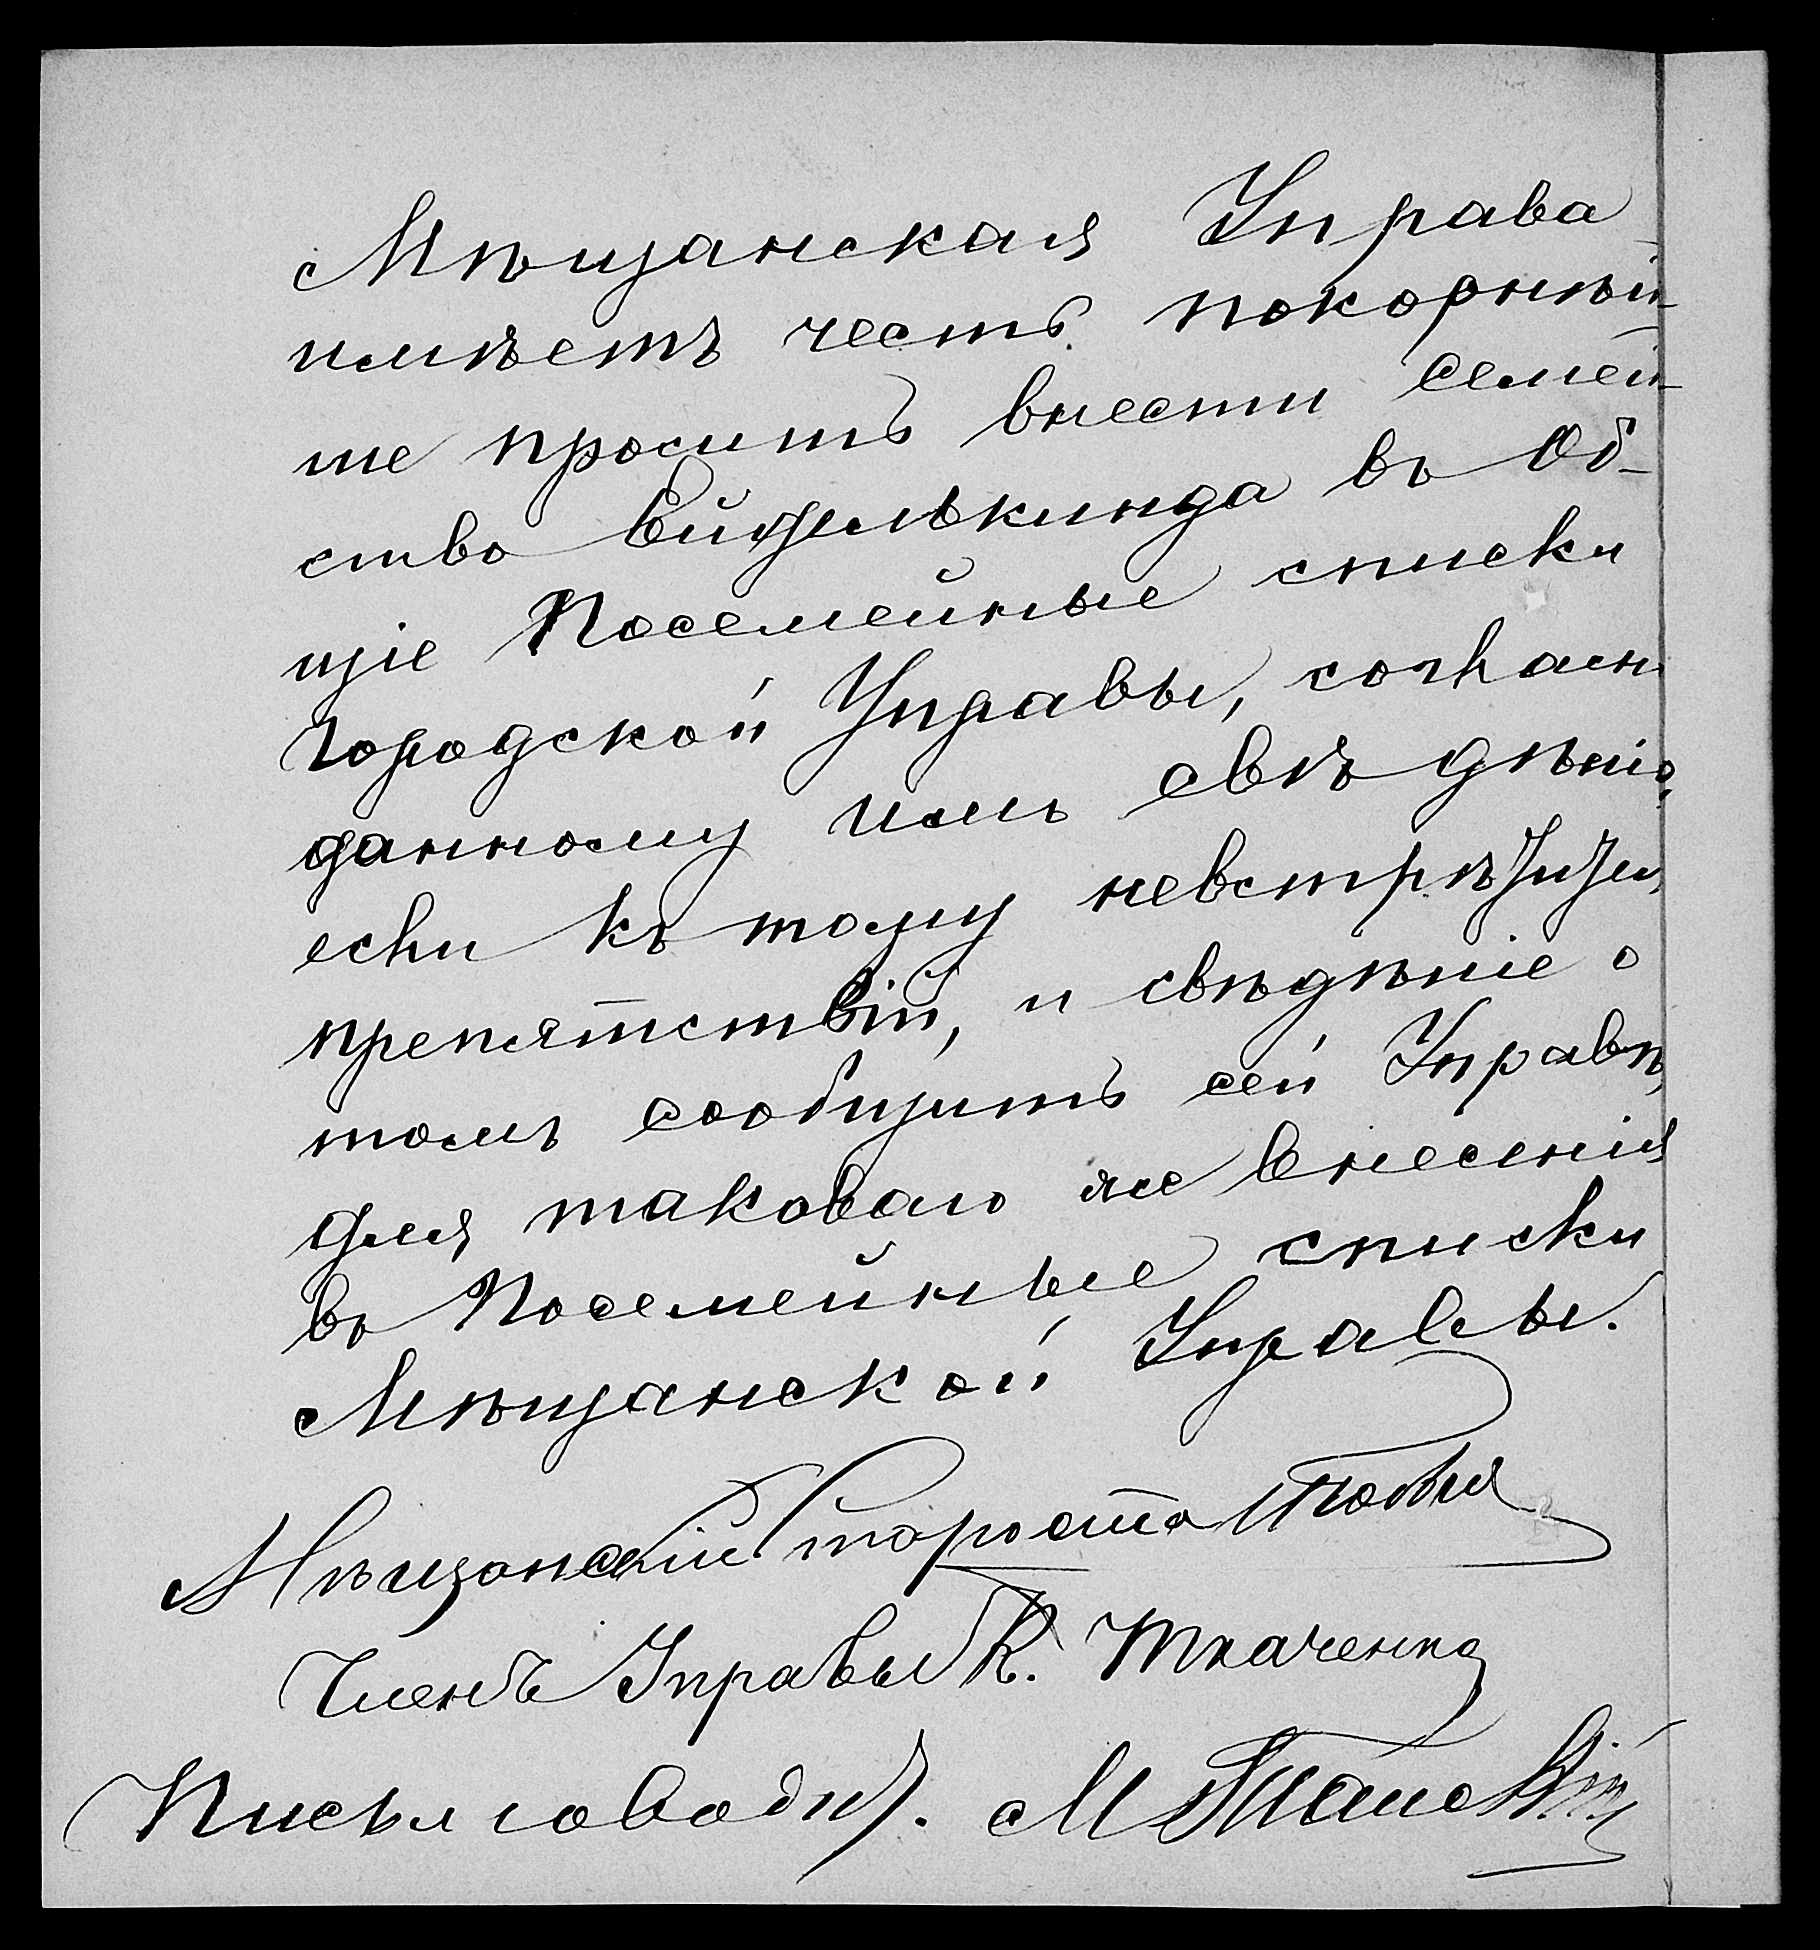 Мѣщанская Управа
имѣетъ честь покорнѣй-
ше просить внести семей-
ство Видельkинда въ Об-
щіе Посемейные списки
Городской Управы, согласн
данному имъ свѣдѣнію,
если къ тому невстрѣтится
препятствій, и свѣдѣніе о
томъ сообщить сей Управѣ,
для таковаго же внесенія
въ Посемейные списки
Мѣщанской Управы.
Мѣщанскій Староста
Членъ Управы К. Ткаченко
Письмоводит. М